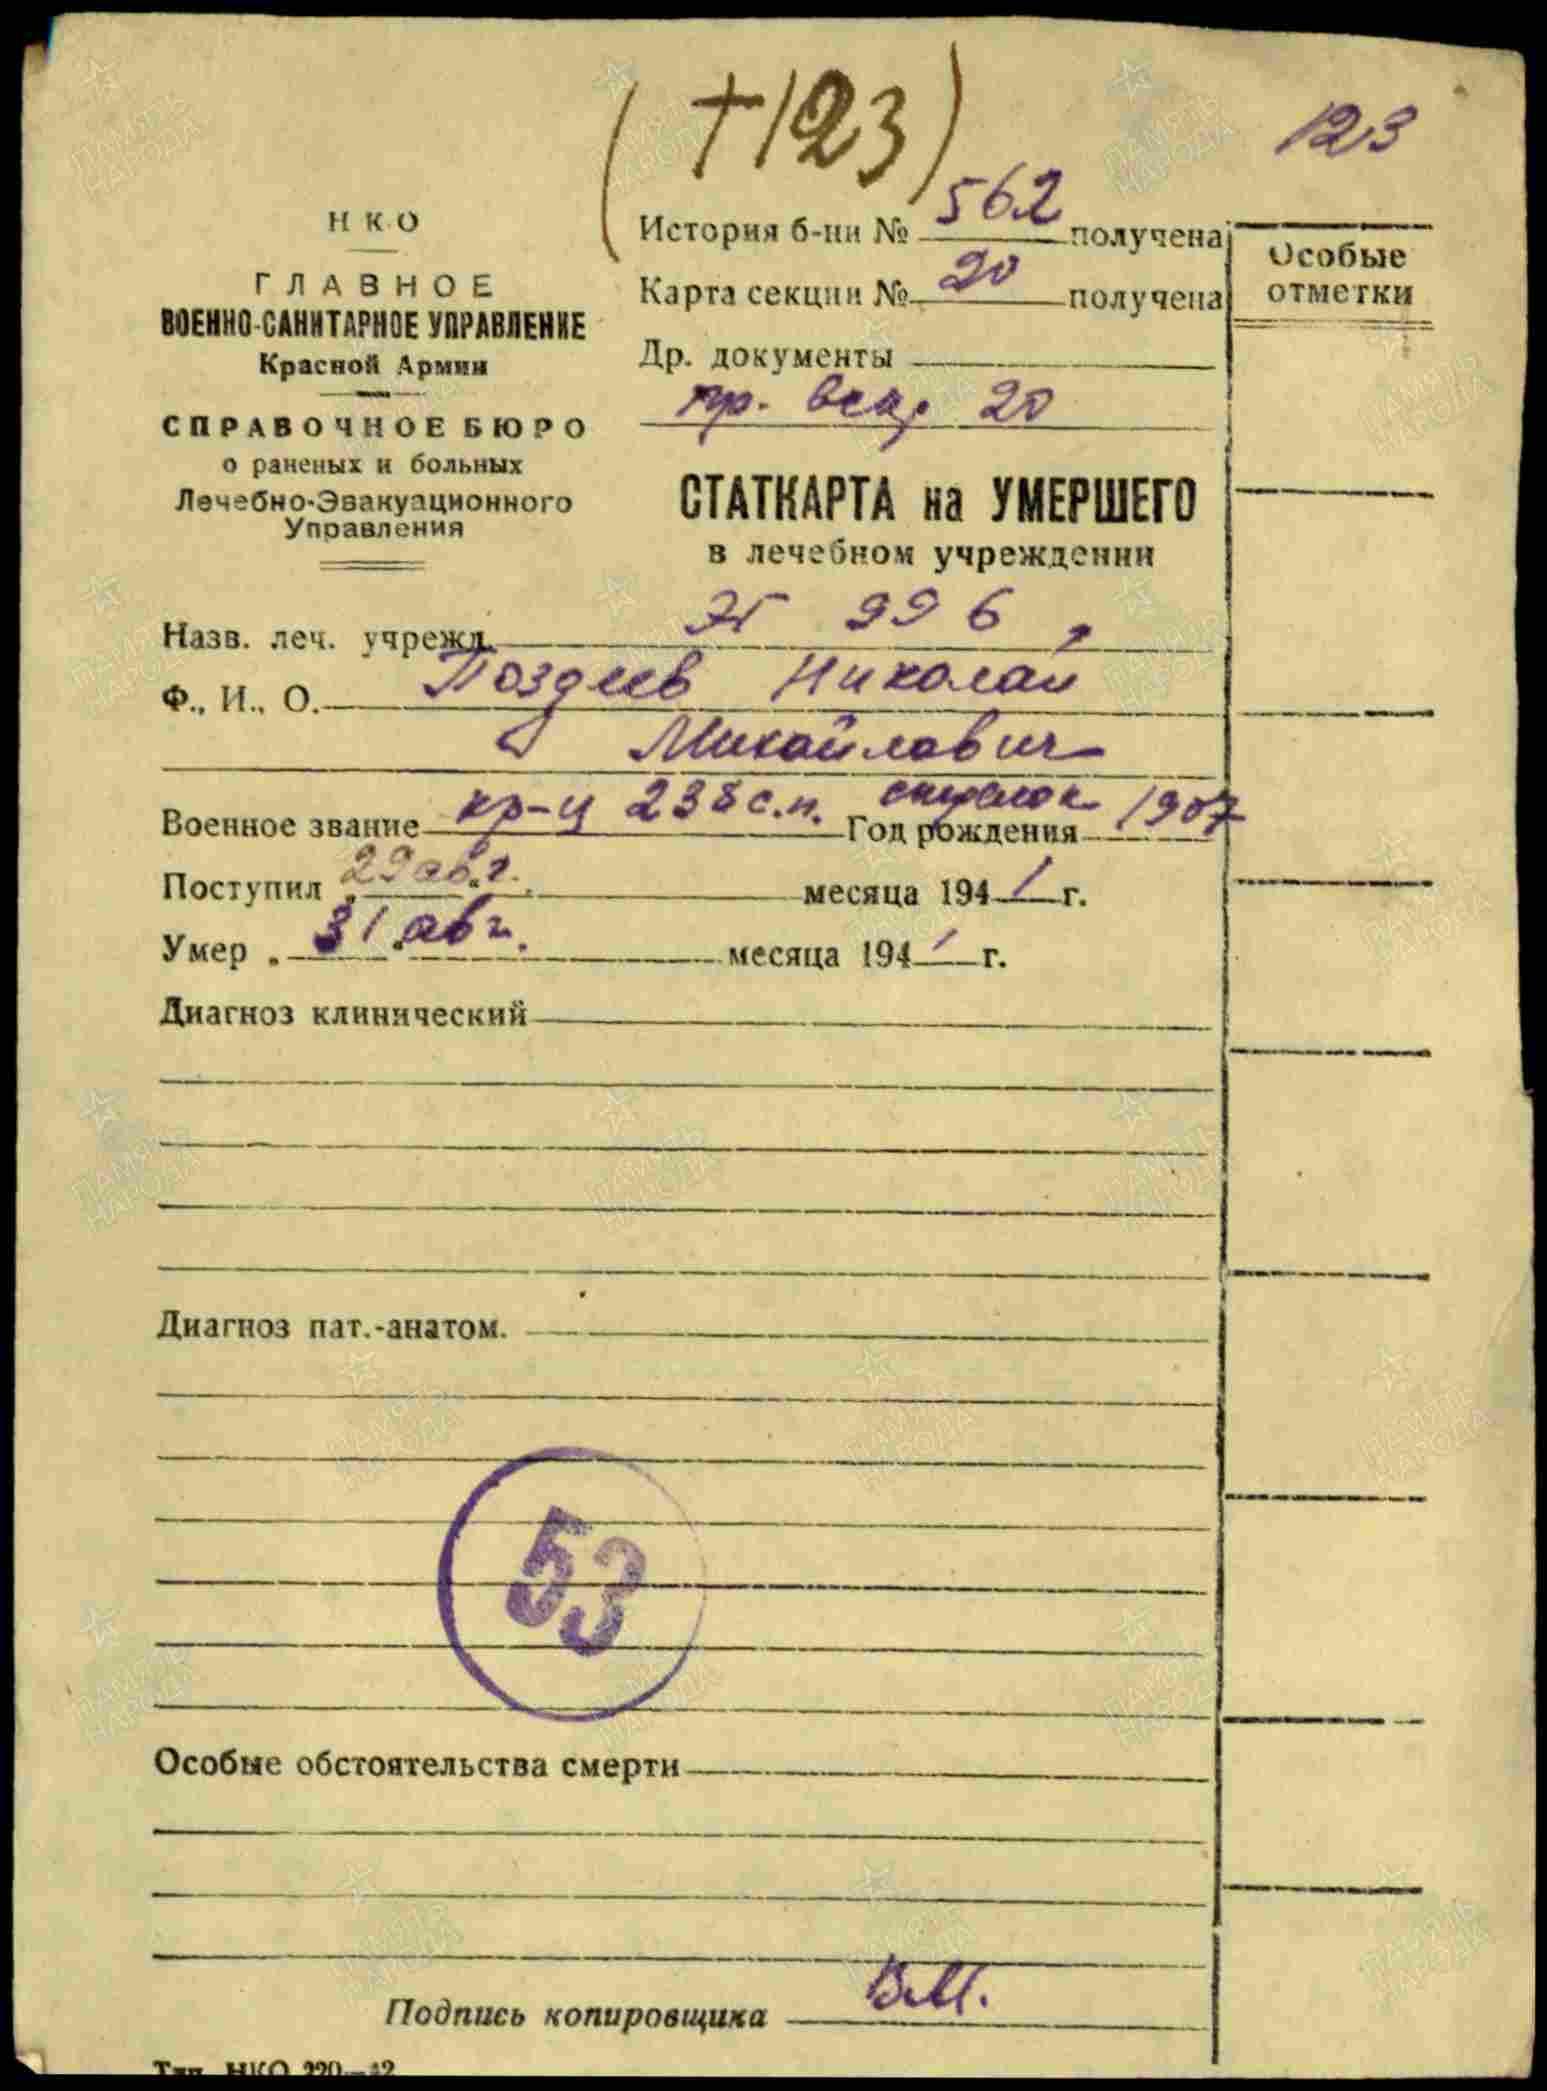 (+123)
123
НКО
ГЛАВНОЕ
ВОЕННО-САНИТАРНОЕ УПРАВЛЕНИЕ
Красной Армии
СПРАВОЧНОЕ БЮРО
о раненых и больных
Лечебно-Эвакуационного
Управления
История б-ни № 562 получена
Карта секции № 20 получена
Др. документы
пр. вск. 20
Особые
отметки
СТАТКАРТА на УМЕРШЕГО
в лечебном учреждении
Назв. леч. учрежд. ЭГ 996
Ф., И., О. Поздеев Николай
Михайлович
Военное звание кр-ц 238 с.п. Год рождения 1907
Поступил 29 авг. месяца 1941 г.
Умер 31 авг. месяца 1941 г.
Диагноз клинический
Диагноз пат.-анатом.
53
Особые обстоятельства смерти
Подпись копировщика В.М.
Тип. НКО 220—42
ПАМЯТЬ
НАРОДА